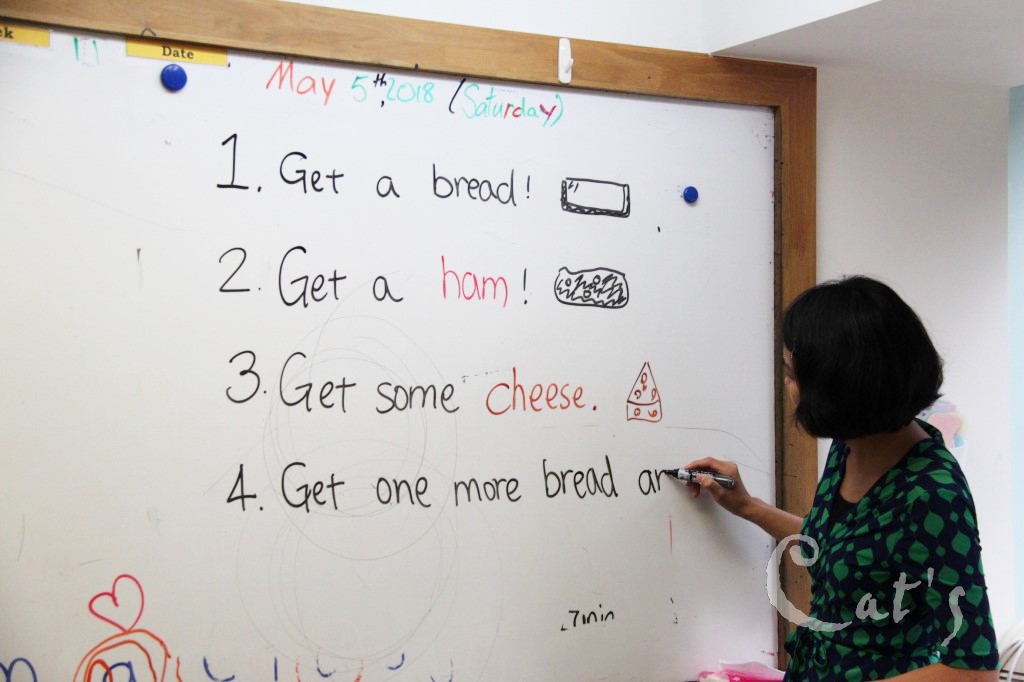 Date
May 5th, 2018 (Saturday)
1. Get a bread!
2. Get a ham!
3. Get some cheese.
4. Get one more bread an
Cat's